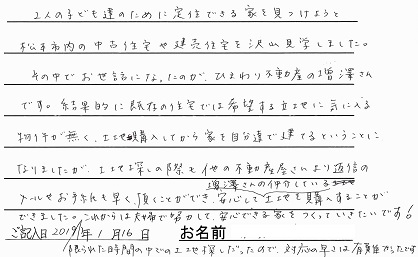 2人の子ども達のために定住できる家を見つけようと
松本市内の中古住宅や建売住宅を沢山見学しました。
その中でお世話になったのが、ひまわり不動産の増澤さん
です。結果的に既存の住宅では希望する立地に気に入る
物件が無く、土地購入してから家を自分達で建てるということに
なりましたが、土地探しの際も他の不動産屋さんより返信の
増澤さんの仲介している
メールやお手紙も早く頂くことができ、安心して土地を購入することが
できました。これからは夫婦で協力して、安心できる家をつくっていきたいです!
ご記入日 2019年 1月16日 お名前
限られた時間の中での土地探しだったので、対応の早さは有難かったです